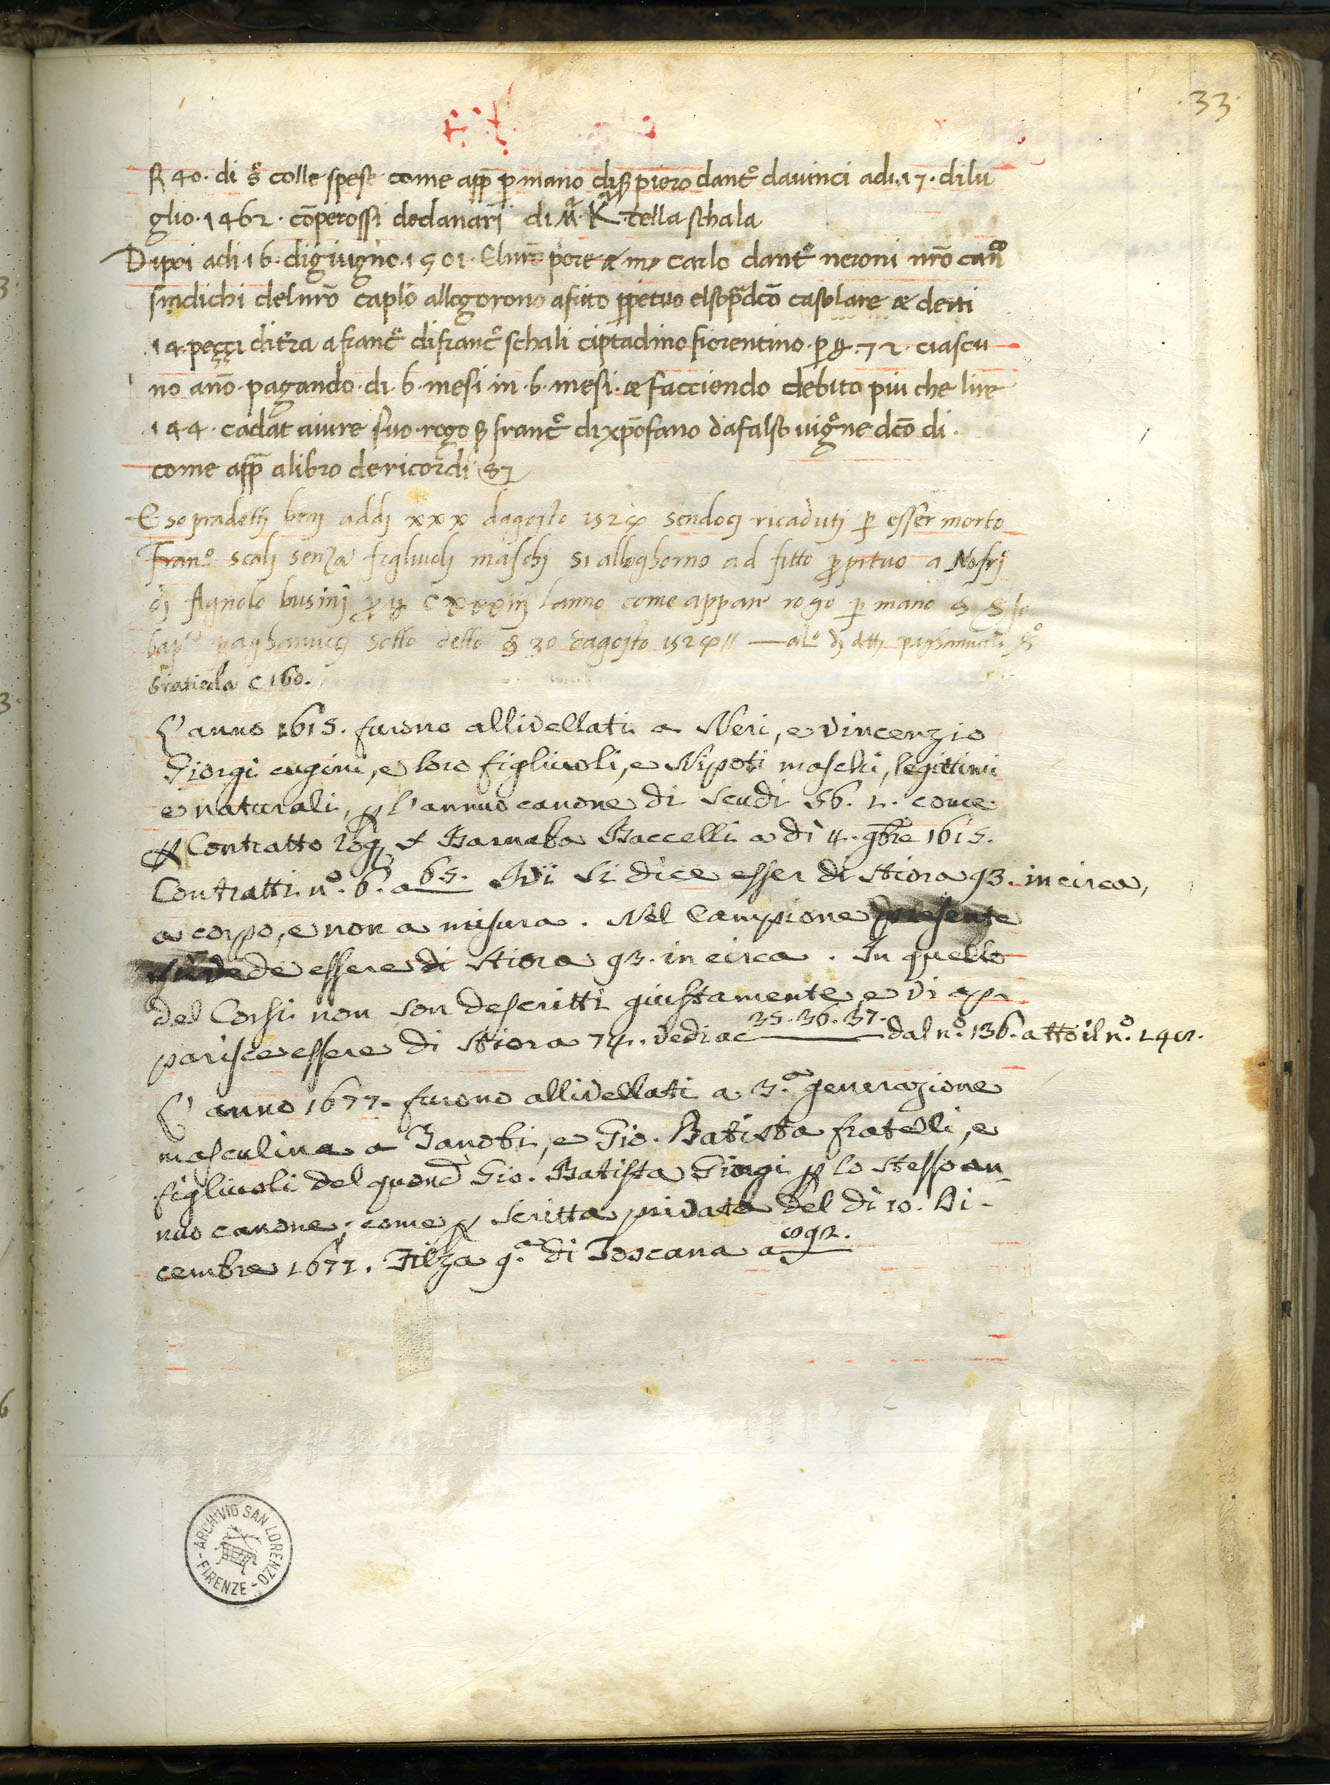 .33.
40. di s̃ colle spese come app̃ p mano di s̃ piero dant.º davinci adi.17. dilu
glio. 1462. cõperossi dedanari di Mª. Kª. della schala
Dipoi adi.16. digiugno.1501. Elnr̃o p̃ore & mr̃ Carlo dant.º neroni nr̃o can.co
sindichi delnr̃o caplõ allogorono afitto ppetuo elsop̃adcõ casolare & detti
14. pezzi dit̃ra a franc.º difranc.º schali ciptadino fiorentino. p 72. ciascu
no anõ. pagando. di.6. mesi in.6. mesi. & facciendo debito piu che lire
144. cadãt aiure suo. rogo s̃ franc.º dixp̃ofano dafalso vig.ne dcõ di.
come app̃ alibro dericordi 87
E sopradetti beni addi xxx dagosto 1524 sendoci ricaduti p esser morto
Fran.º scali senza figliuoli maschi si alloghorno ad fitto ppetuo a Nofri
di Agnolo busini p lanno come appare rogo p mano
bap.ta paghanucci sotto detto di 30 dagosto 1524 //
Graticola c 160.
L'anno 1615. furono allivellati a Neri, e Vincenzio
Giorgi cugini, e loro figliuoli, e Nipoti maschi, legittimi
e naturali, p l'annuo canone di scudi 56. 2. come
p Contratto rog. Barnaba Baccelli a dì 4. 9bre 1615.
Contratti n.º 6. a 65. Ivi si dice esser di stiora 93. in circa,
a corpo, e non a misura. Nel Campione presente
si vede essere di stiora 93. in circa. In quello
del Corsi non son descritti giustamente, e vi ap-
parisce essere di stiora 74. vedi a c 35. 36. 37. dal n.º 136. atto il n.º 149.
L'anno 1677. furono allivellati a 3.ª generazione
masculina a Zanobi, e Gio. Batista fratelli, e
figliuoli del quond. Gio. Batista Giorgi p lo stesso an-
nuo canone; come p scritta privata del dì 10. Di-
cembre 1677. Filza 9.ª di Toscana a 892.
ARCHIVIO SAN LORENZO
- FIRENZE -